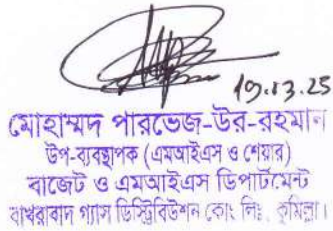 19.13.25
মোহাম্মদ পারভেজ-উর-রহমান
উপ-ব্যবস্থাপক (এমআইএস ও শেয়ার)
বাজেট ও এমআইএস ডিপার্টমেন্ট
বাখরাবাদ গ্যাস ডিস্ট্রিবিউশন কোং লিঃ, কুমিল্লা।